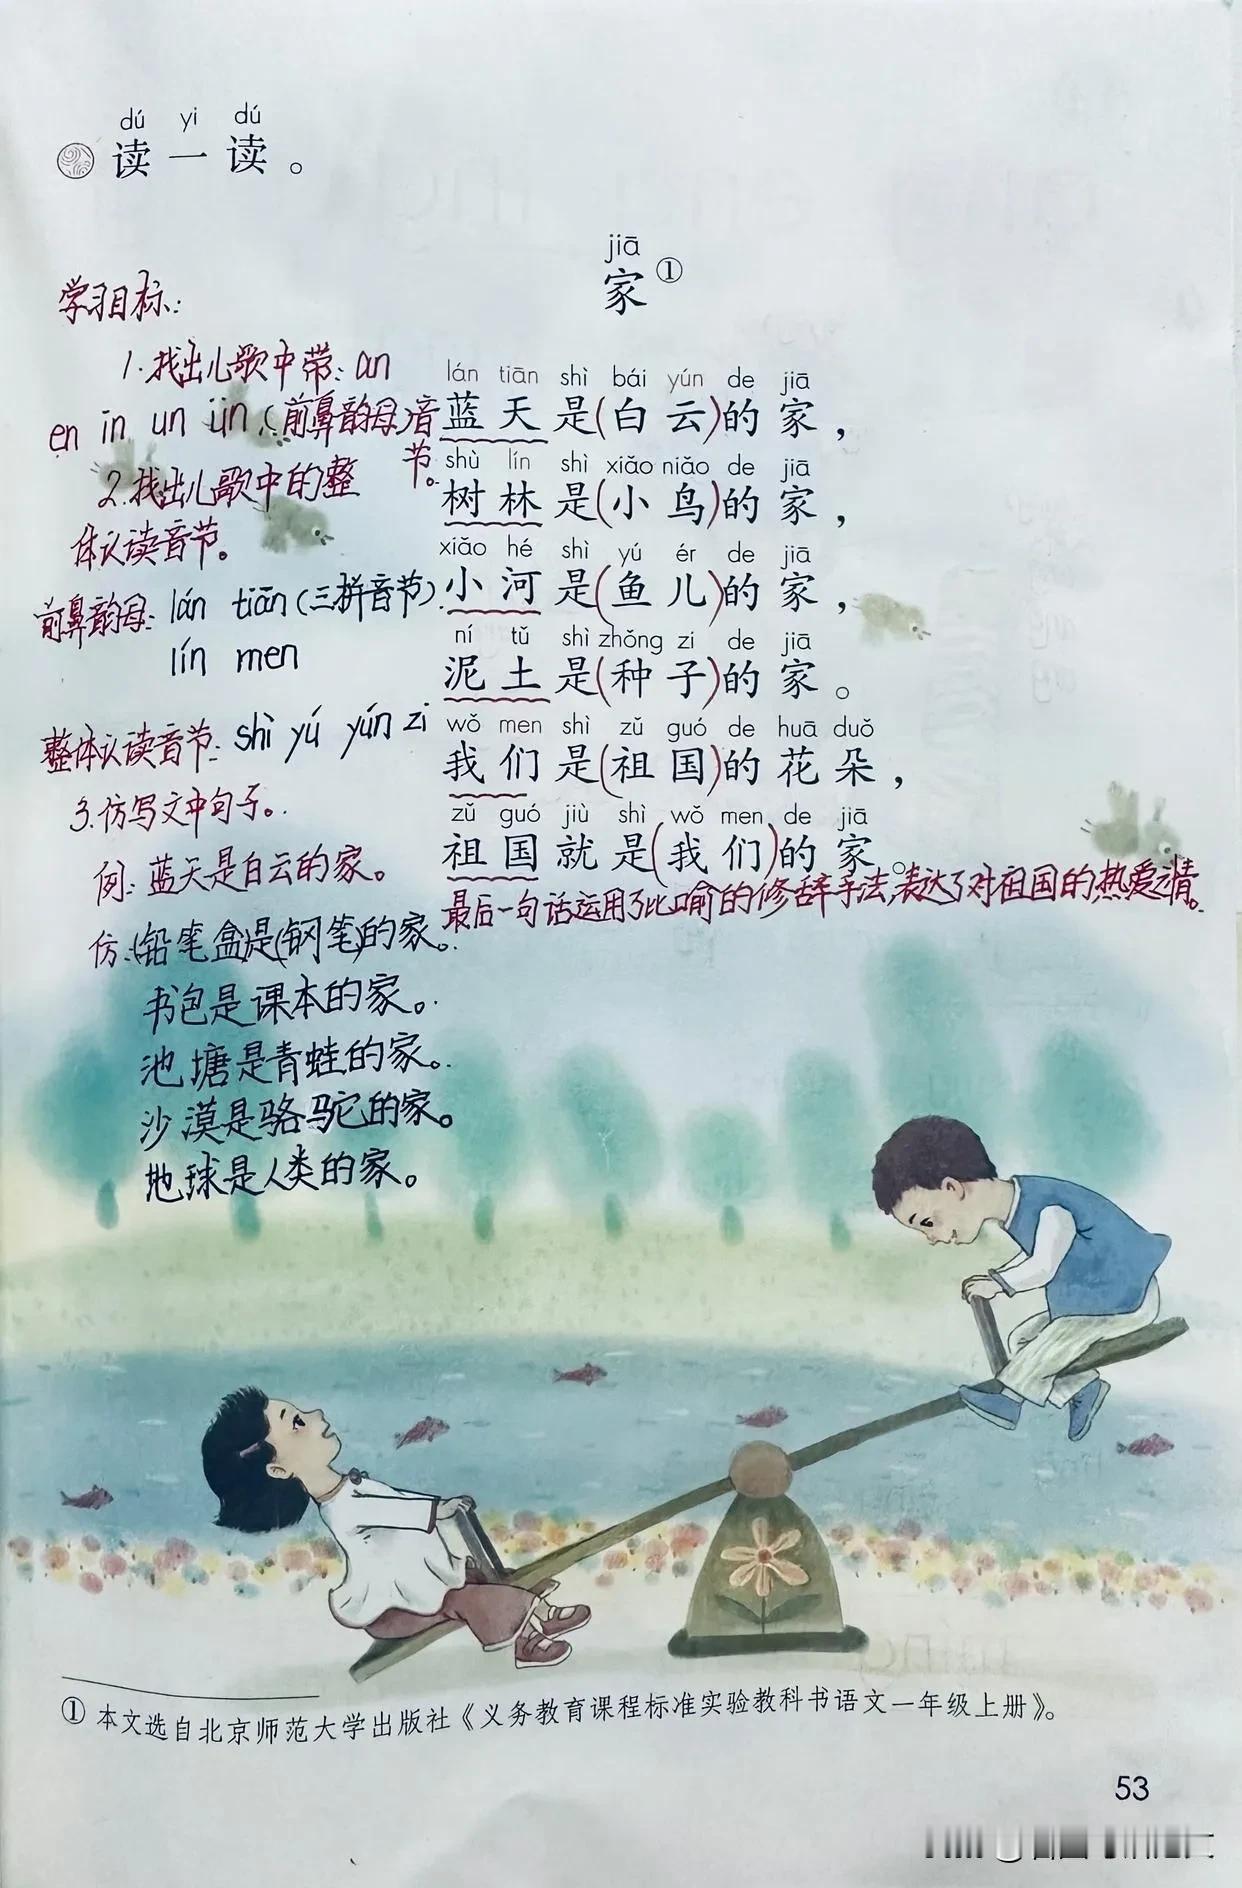 dú yi dú
读一读。
jiā
家①
学习目标:
1.找出儿歌中带:an
en in un ün(前鼻韵母)音
节。
2.找出儿歌中的整
体认读音节。
前鼻韵母: lán tiān(三拼音节).
lín men
整体认读音节: shì yú yún zi
3.仿写文中句子。
例:蓝天是白云的家。
仿:(铅笔盒)是(钢笔)的家。
书包是课本的家。
池塘是青蛙的家。
沙漠是骆驼的家。
地球是人类的家。
lán tiān shì bái yún de jiā
蓝天是(白云)的家,
shù lín shì xiǎo niǎo de jiā
树林是(小鸟)的家,
xiǎo hé shì yú ér de jiā
小河是(鱼儿)的家,
ní tǔ shì zhǒng zi de jiā
泥土是(种子)的家。
wǒ men shì zǔ guó de huā duǒ
我们是(祖国)的花朵,
zǔ guó jiù shì wǒ men de jiā
祖国就是(我们)的家。
最后一句话运用了比喻的修辞手法,表达了对祖国的热爱之情。
① 本文选自北京师范大学出版社《义务教育课程标准实验教科书语文一年级上册》。
53